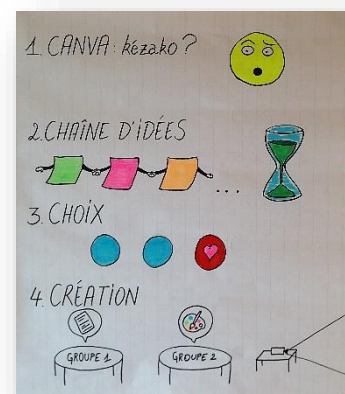 1. CANVA: kézako?
2. CHAÎNE D'IDÉES
...
3. CHOIX
4. CRÉATION
GROUPE 1 GROUPE 2